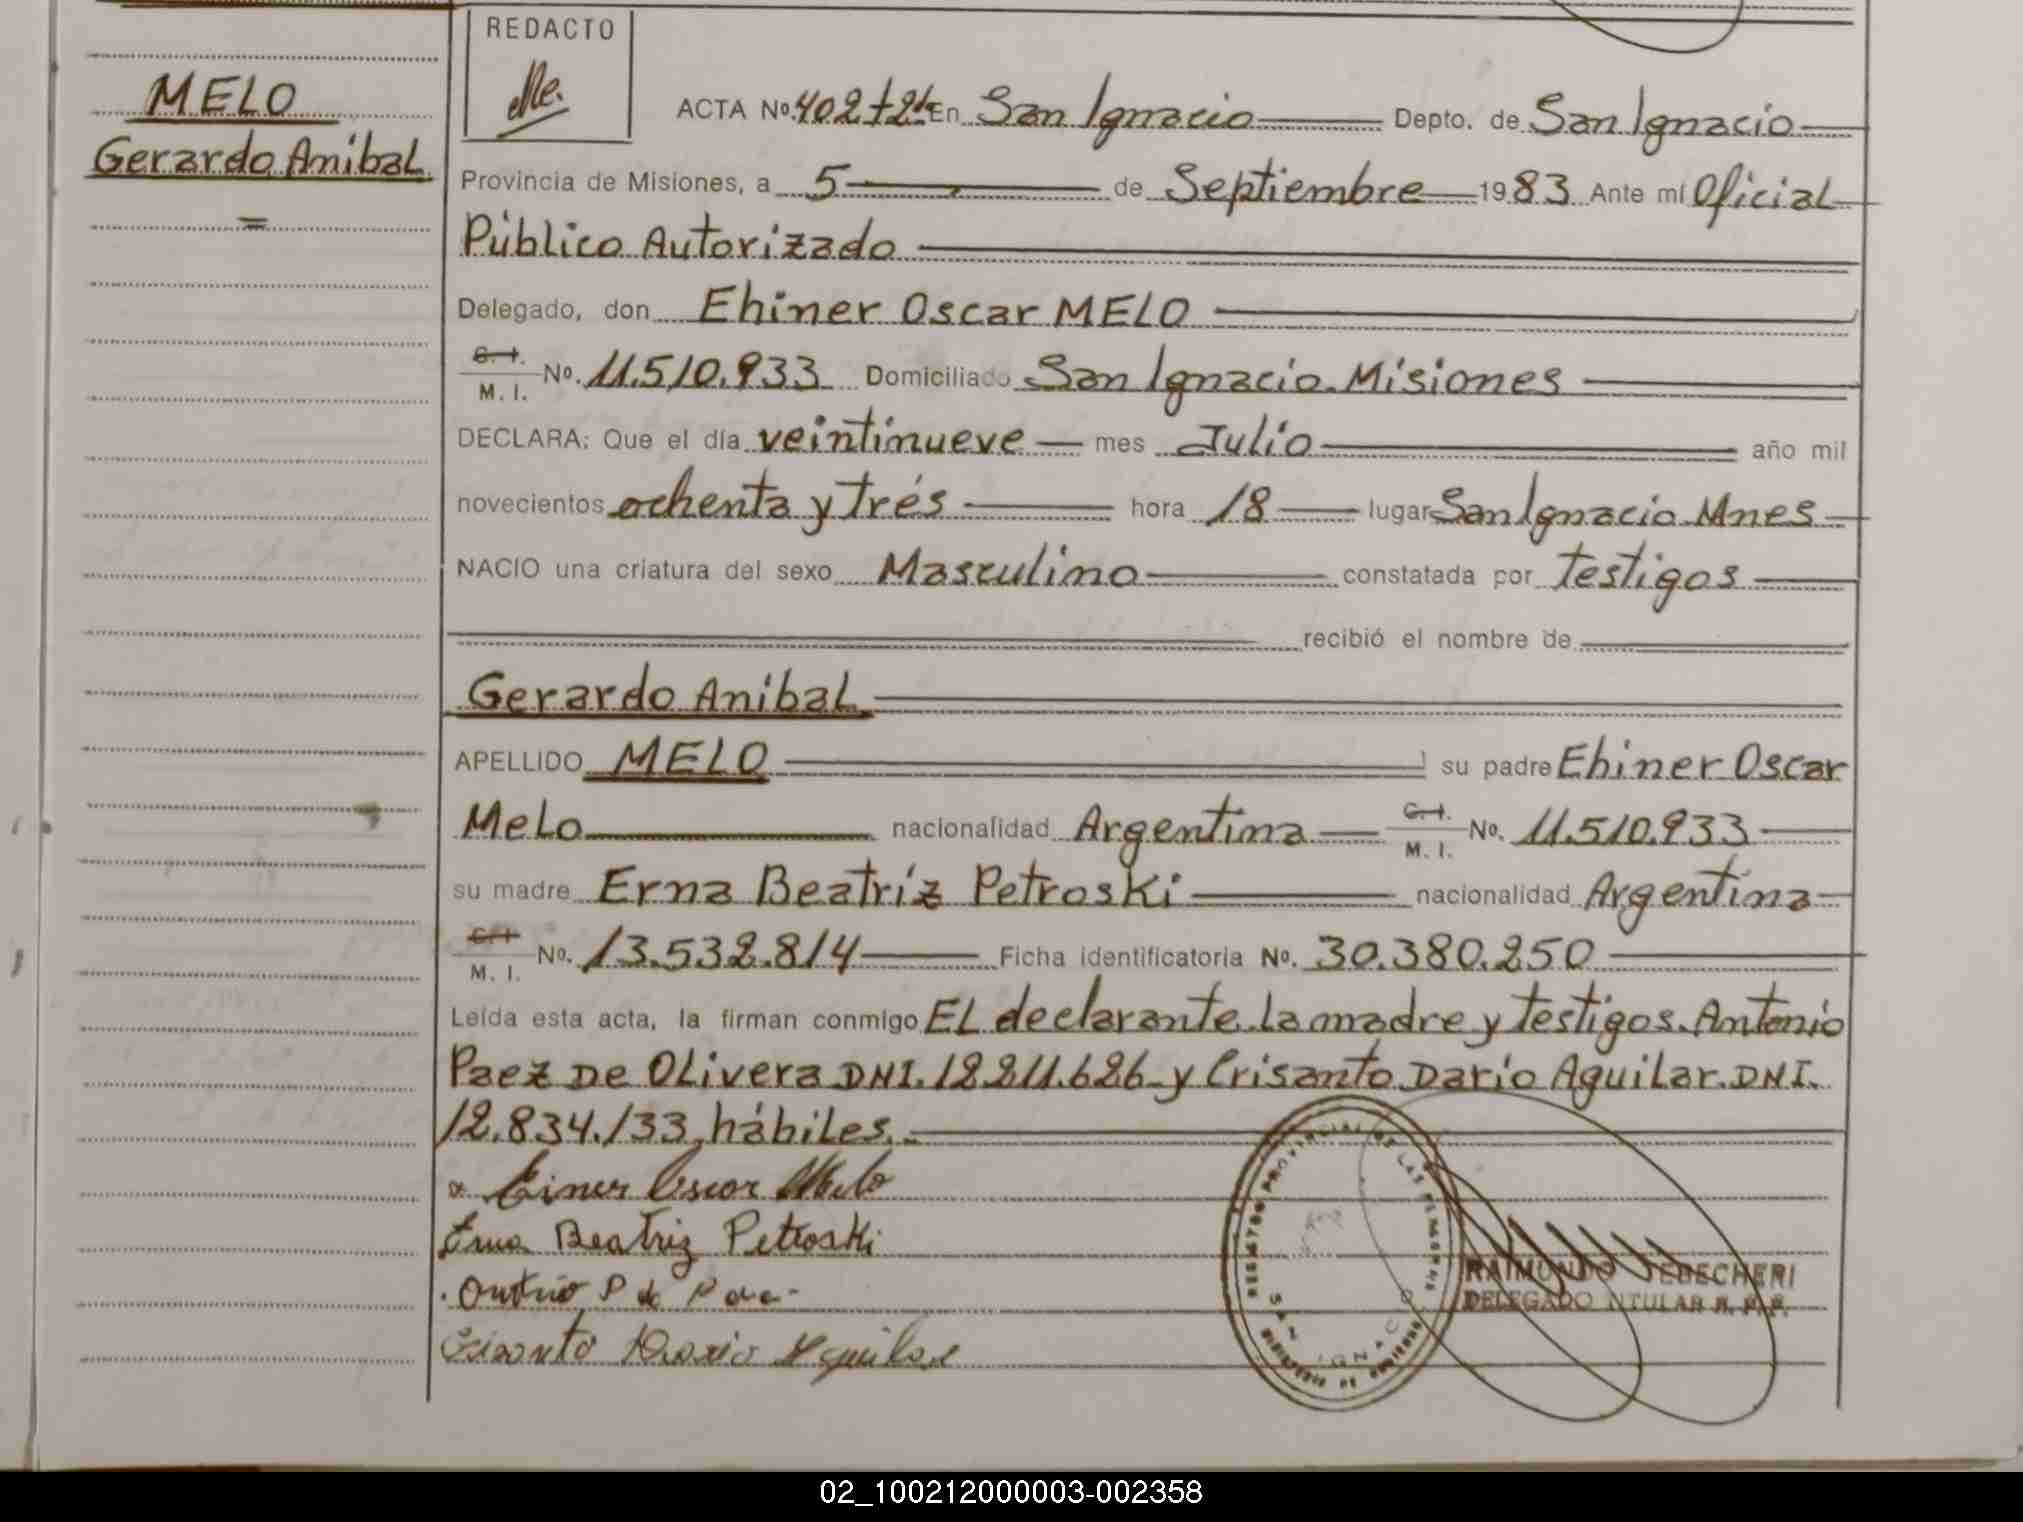 MELO
Gerardo Anibal
=
REDACTO
ACTA No. 402 t 2d En San Ignacio Depto. de San Ignacio
Provincia de Misiones, a 5 de Septiembre 1983 Ante mí Oficial
Público Autorizado
Delegado, don Ehiner Oscar MELO
C. I.
M. I. No. 11.510.933 Domiciliado San Ignacio. Misiones
DECLARA: Que el día veintinueve mes Julio año mil
novecientos ochenta y trés hora 18 lugar San Ignacio Mnes
NACIO una criatura del sexo Masculino constatada por testigos
recibió el nombre de
Gerardo Anibal
APELLIDO MELO su padre Ehiner Oscar
Melo nacionalidad Argentina C. I. M. I. No. 11.510.933
su madre Erna Beatríz Petroski nacionalidad Argentina
C. I.
M. I. No. 13.532.814 Ficha identificatoria No. 30.380.250
Leída esta acta, la firman conmigo El declarante. La madre y testigos. Antonio
Paez De Olivera DNI. 12.211.626 y Crisanto Darío Aguilar. DNI.
12.834.133, hábiles.
Einer Oscar Melo
Erna Beatriz Petroski
Crisanto Dario Aguilar
REGISTRO PROVINCIAL DE LAS PERSONAS
SAN IGNACIO
MINISTERIO DE GOBIERNO
RAIMUNDO
DELEGADO TITULAR R. P. P.
02_100212000003-002358